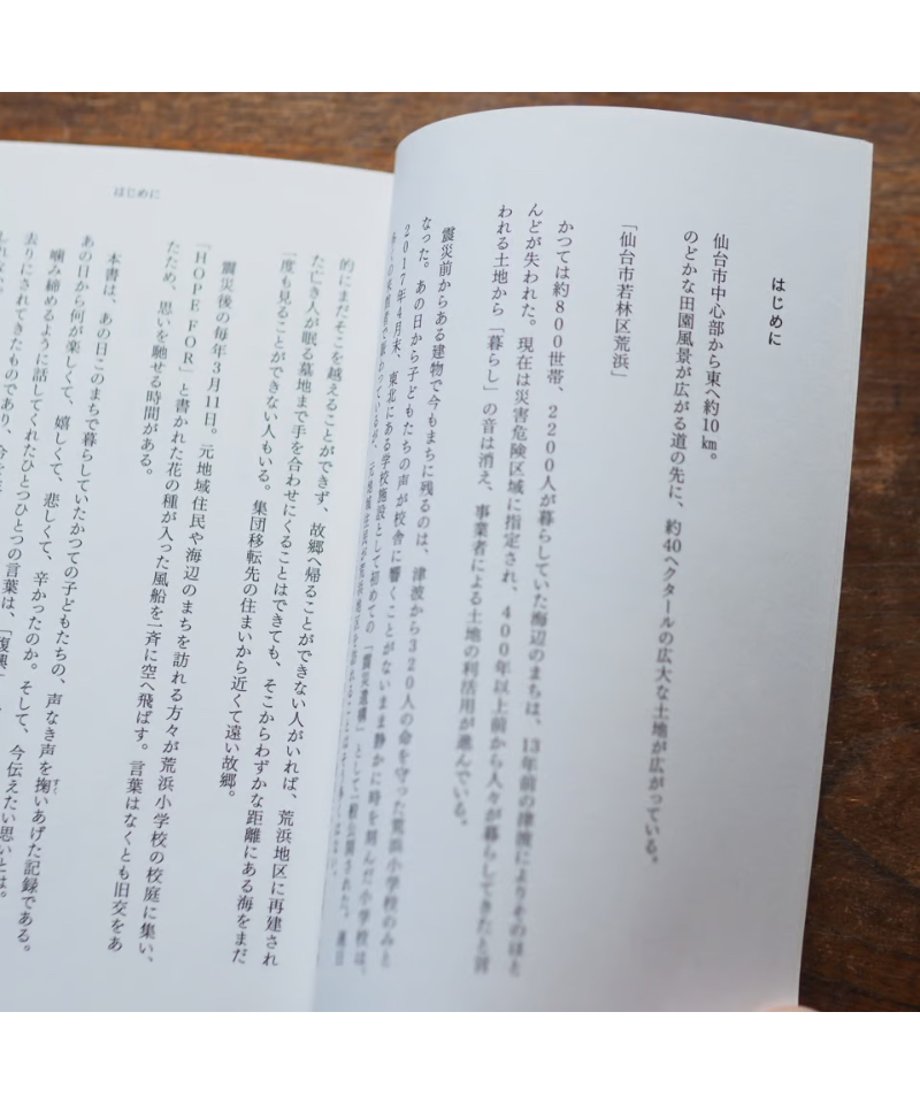 はじめに
仙台市中心部から東へ約10㎞。
のどかな田園風景が広がる道の先に、約40ヘクタールの広大な土地が広がっている。
「仙台市若林区荒浜」
かつては約800世帯、2200人が暮らしていた海辺のまちは、13年前の津波によりそのほと
んどが失われた。現在は災害危険区域に指定され、400年以上前から人々が暮らしてきたと言
われる土地から「暮らし」の音は消え、事業者による土地の利活用が進んでいる。
震災前からある建物で今もまちに残るのは、津波から320人の命を守った荒浜小学校のみと
なった。あの日から子どもたちの声が校舎に響くことがないまま静かに時を刻んだ小学校は、
2017年4月末、東北にある学校施設として初めての「震災遺構」として一般公開された。
はじめに
的にまだそこを越えることができず、故郷へ帰ることができない人がいれば、荒浜地区に再建され
た亡き人が眠る墓地まで手を合わせにくることはできても、そこからわずかな距離にある海をまだ
一度も見ることができない人もいる。集団移転先の住まいから近くて遠い故郷。
震災後の毎年3月11日。元地域住民や海辺のまちを訪れる方々が荒浜小学校の校庭に集い、
「HOPE FOR」と書かれた花の種が入った風船を一斉に空へ飛ばす。言葉はなくとも旧交をあ
たため、思いを馳せる時間がある。
本書は、あの日このまちで暮らしていたかつての子どもたちの、声なき声を掬いあげた記録である。
あの日から何が楽しくて、嬉しくて、悲しくて、辛かったのか。そして、今伝えたい思いとは。
噛み締めるように話してくれたひとつひとつの言葉は、「復興」
去りにされてきたものであり、